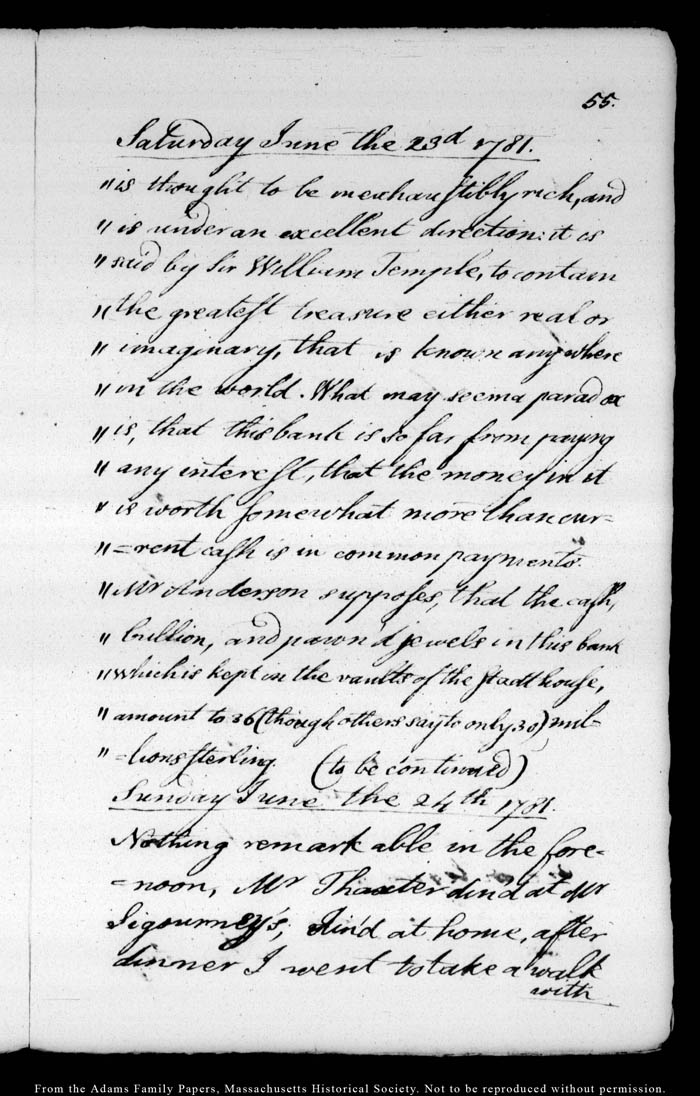 55.
Saturday June the 23d 1781.
"is thought to be inexhaustibly rich, and
"is under an excellent direction: it is
"said by Sir William Temple, to contain
"the greatest treasure either real or
"imaginary, that is known any where
"in the world. What may seem a paradox
"is, that this bank is so far from paying
"any interest, that the money in it
"is worth somewhat more than cur=
"=rent cash is in common payments.
"Mr Anderson supposes, that the cash,
"bullion, and pawn'd jewels in this bank
"which is kept in the vaults of the stadthouse,
"amount to 36 (though others say to only 30) mil-
"=lions sterling. (to be continued)
Sunday June the 24th 1781.
Nothing remarkable in the fore=
=noon, Mr Thaxter din'd at Mr
Sigourney's, din'd at home, after
dinner I went to take a walk
with
From the Adams Family Papers, Massachusetts Historical Society. Not to be reproduced without permission.